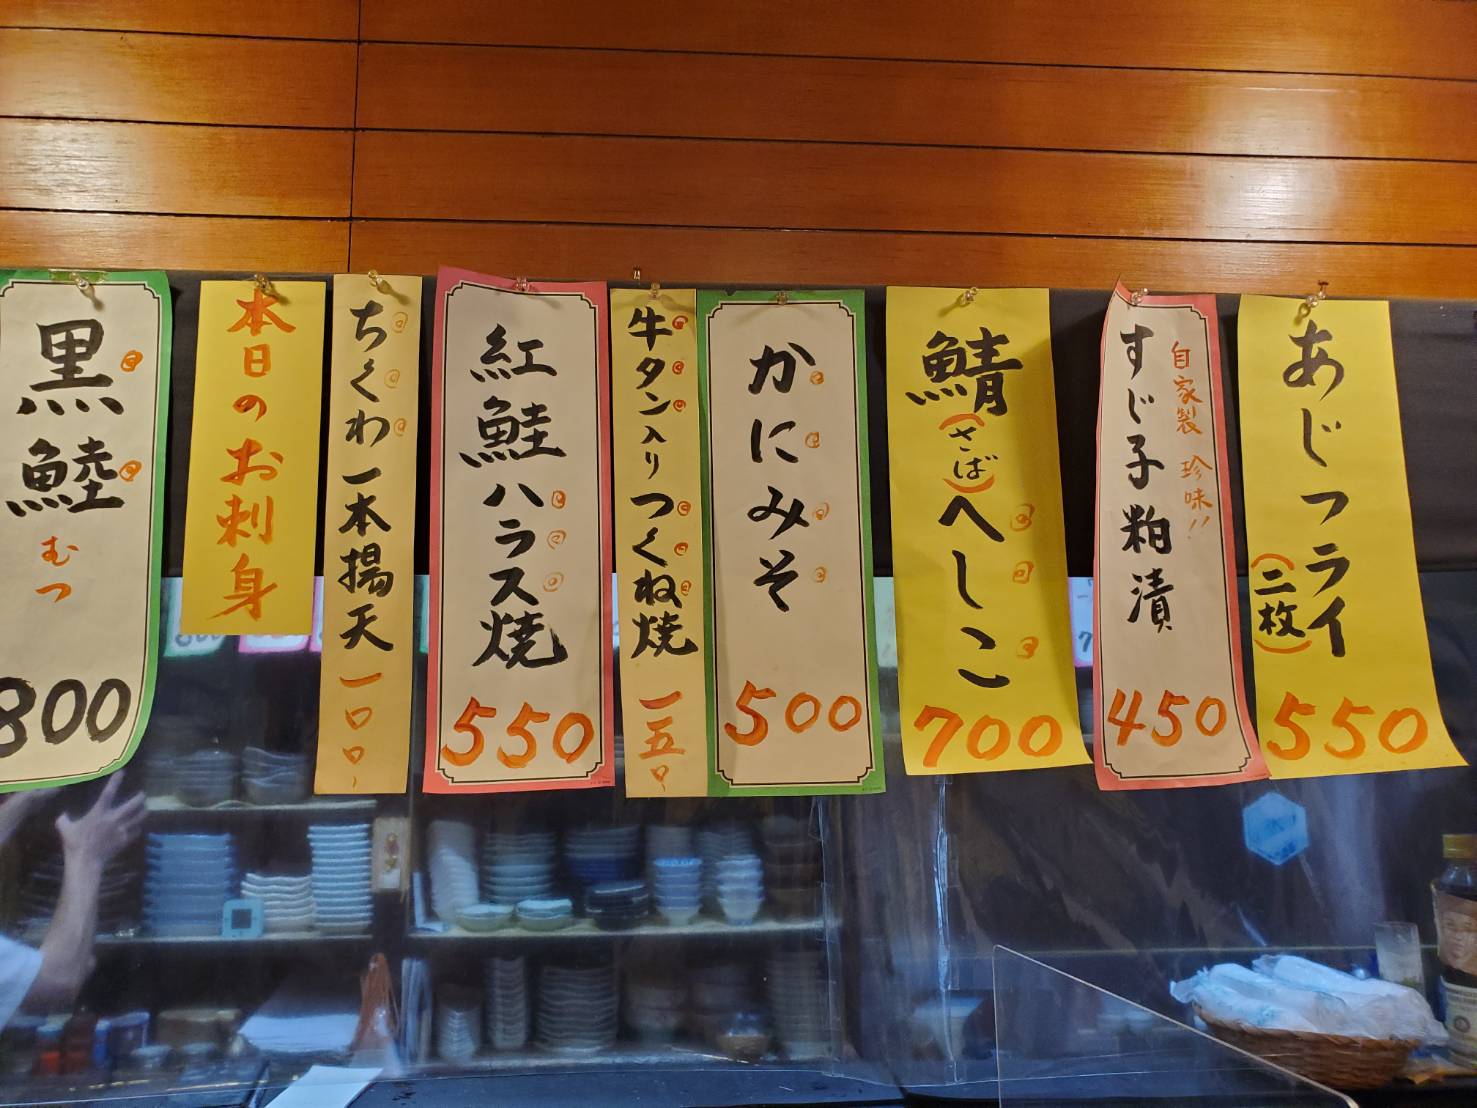 あじフライ
(二枚)
550
自家製 珍味!!
すじ子粕漬
450
鯖(さば)へしこ
700
かにみそ
500
牛タン入りつくね焼
一五〇
紅鮭ハラス焼
550
ちくわ一本揚天
一〇〇
本日のお刺身
黒鯥
むつ
800